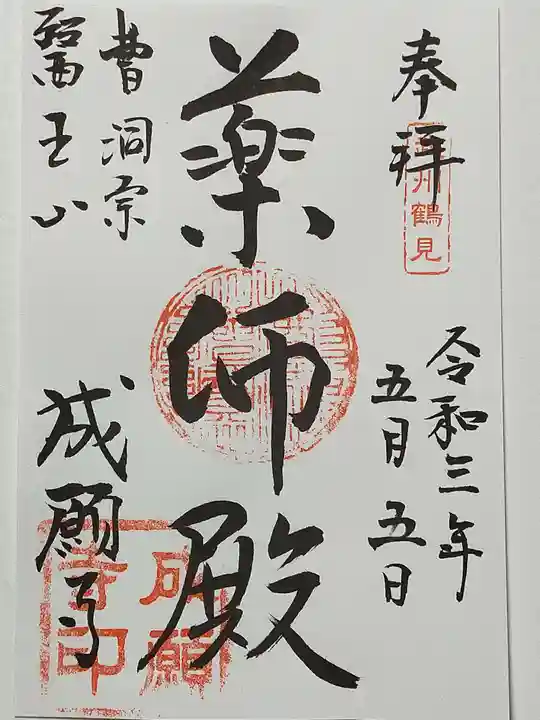 奉拝
州鶴見
令和三年
五月五日
薬師殿
曹洞宗
醫王山
成願寺
成願
寺印